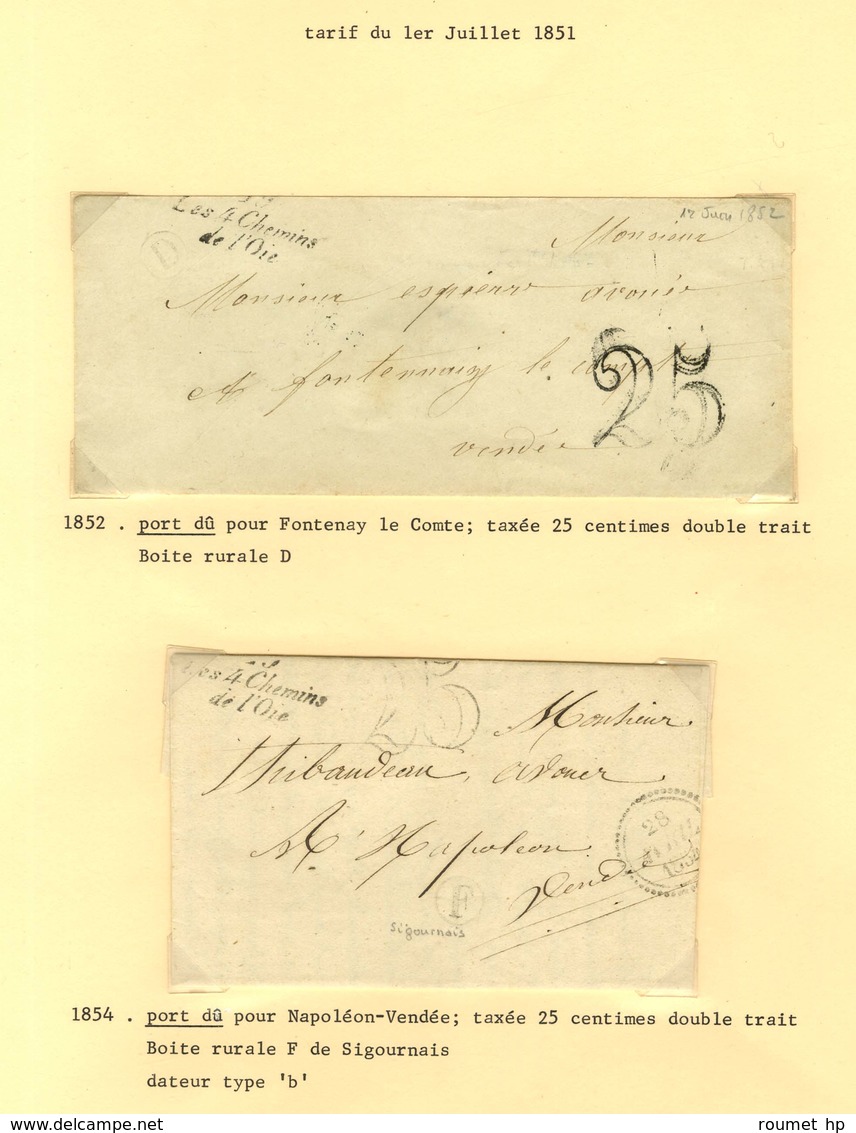 tarif du 1er Juillet 1851
Les 4 Chemins
de l'Oie
D
12 Juin 1852
Monsieur
Monsieur espierre avouée
A fontennaiy le comte
25
vendée
1852 . port dû pour Fontenay le Comte; taxée 25 centimes double trait
Boite rurale D
Les 4 Chemins
de l'Oie
25
Monsieur
Thibaudeau, avouer
A Napoleon
Vend
28
F
Sigournais
1854 . port dû pour Napoléon-Vendée; taxée 25 centimes double trait
Boite rurale F de Sigournais
dateur type 'b'
www.delcampe.net
roumet hp